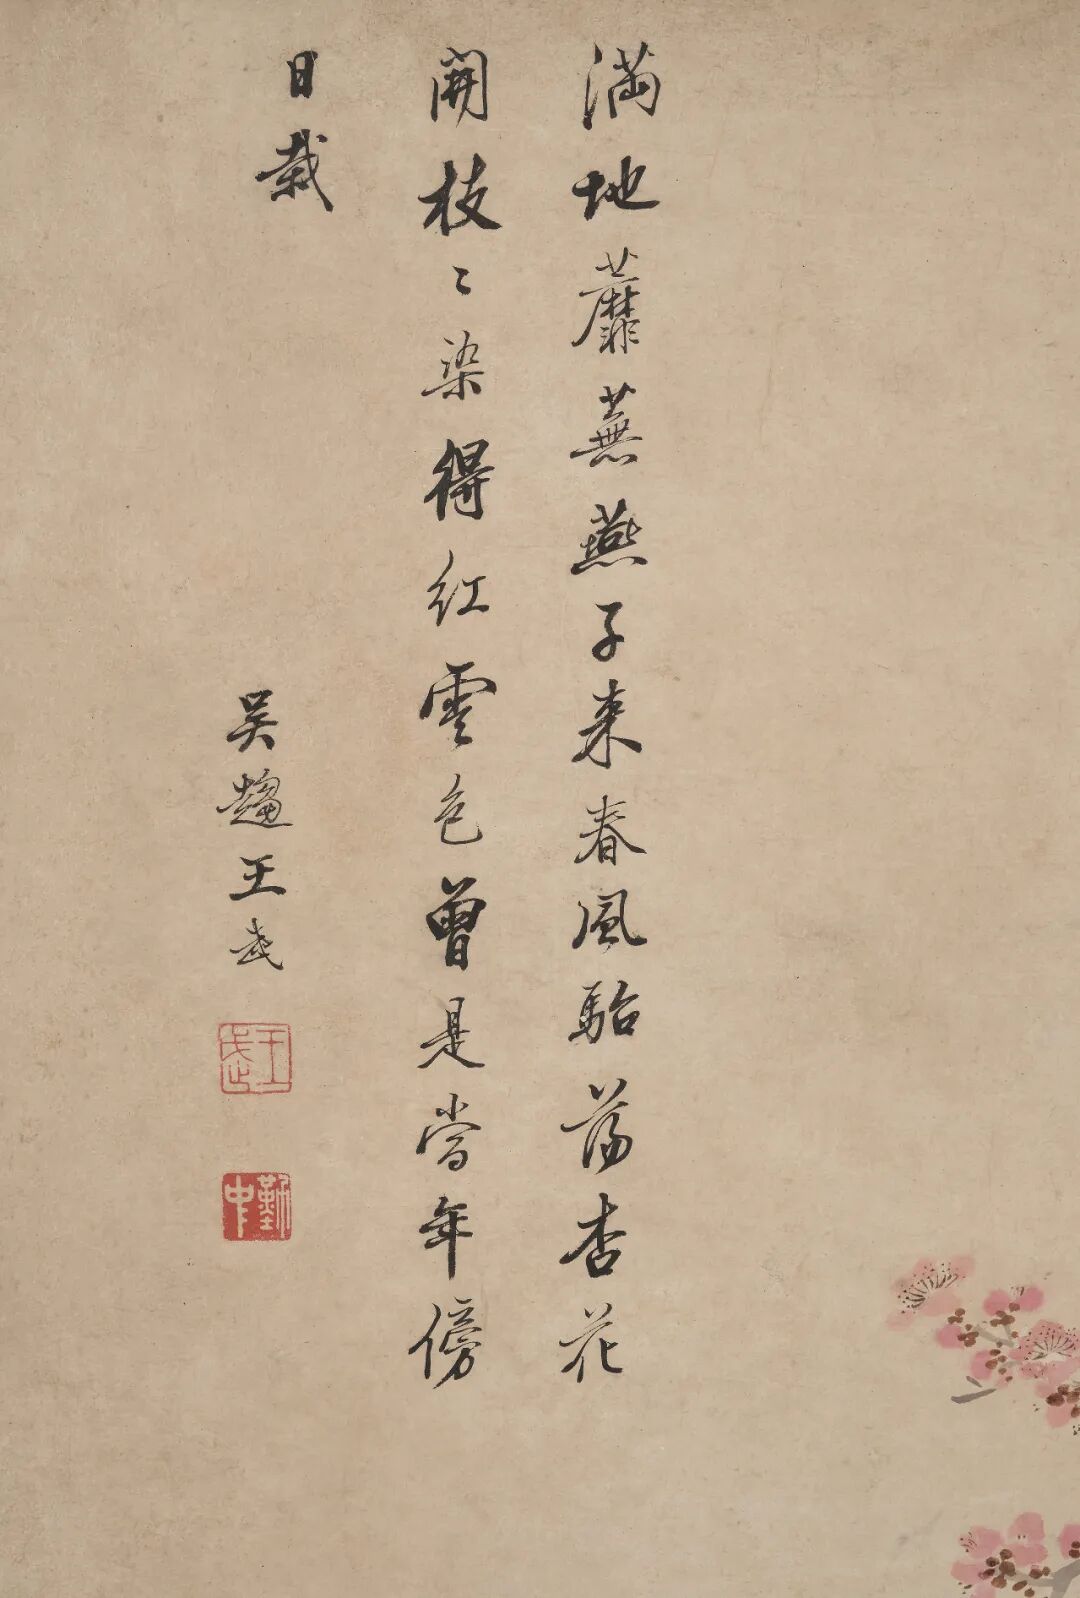 満地蘼蕪燕子来春風駘蕩杏花
開枝〻染得紅雲色曾是當年傍
日栽
吳趨王武
王武
勤中